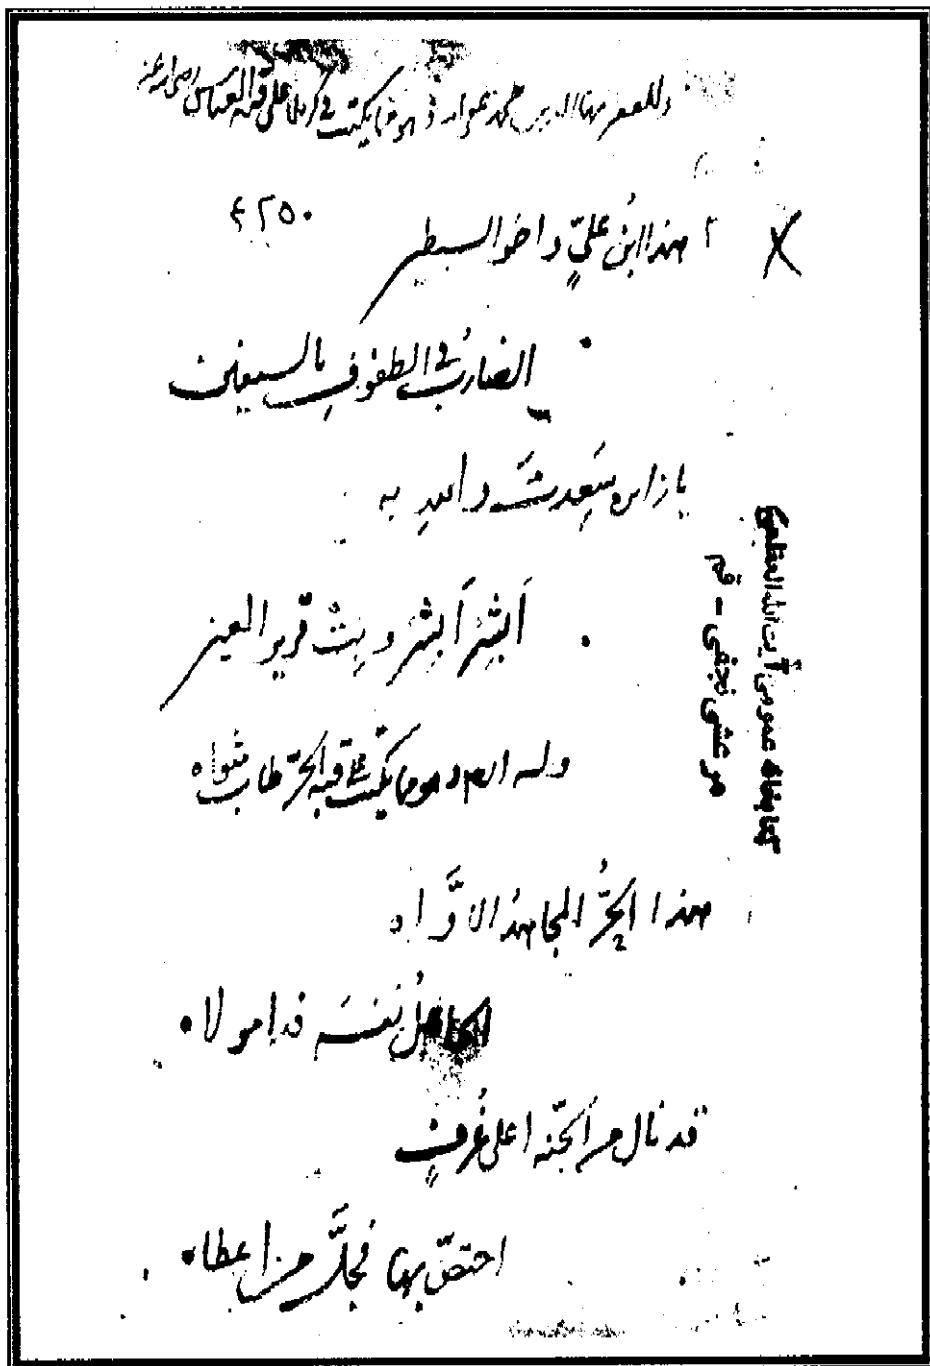 وللفقير بهاء الدين محمد عفى عنه وهو مما يكتب في كربلا على قبة العباس
٤٢٥٠
هذا ابنُ عليٍّ واخو السبطين
الضاربُ في الطفوفِ بالسيفين
يا زايره سَعِدتَ والله به
اَبشِر اَبشِر وبِتْ قرير العين
وله ايضا وهو مما يكتب على قبة الحرّ طاب مثواه
هذا الحُرُّ المجاهدُ الاوَّاه
الجاعلُ نفسَه فدا مولاه
قد نال من الجنّه اعلى غُرفٍ
اختصّ بها فجلَّ من اعطاه
كتابخانه عمومى آيت الله العظمى
مرعشى نجفى - قم